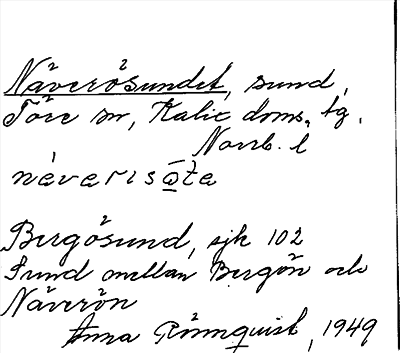 Näverösundet, sund,
Töre sn, Kalix doms. tg.
Norrb. l
nèverisōta
Bergösund, sjk 102
Sund mellan Bergön och
Näverön
Anna Rönnquist, 1949